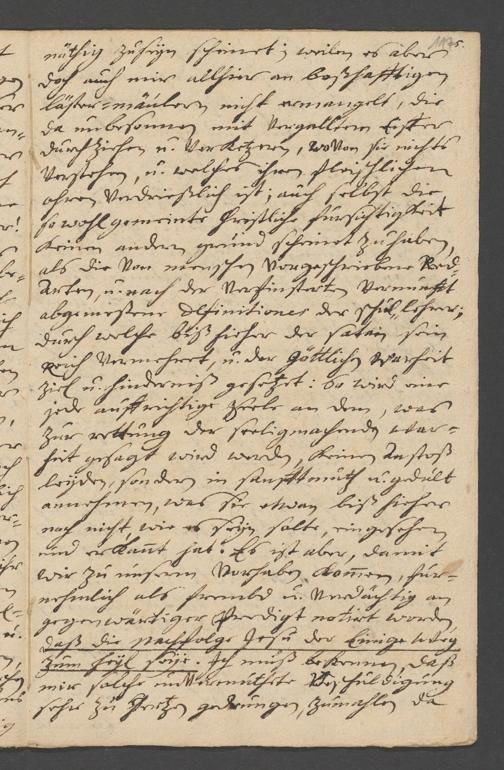 1175.
nöthig zuseÿn scheinet; weilen es aber
doch auch mir allhier an boßhafftigen
läster=mäulern nicht ermangelt, die
da unbesonnen mit vergalltem Eiffer
durchziehen u. verketzern, wovon sie nichts
verstehen, u. welches ihren fleischlichen
ohren verdrießlich ist; auch selbst die
so wohl gemeinte Christliche fürsichtigkeit
keinen andern grund scheinet zu haben,
als die von menschen vorgeschriebene Red=
Arten, u. nach der verfinsterten vernunfft
abgemeßene Definitiones der schul=lehrer;
durch welche biß hieher der satan sein
reich vermehret, u. der Göttlichen warheit
ziel u. hinderniß gesetzet: So wird eine
jede auffrichtige Seele an dem, was
zur rettung der seeligmachenden war=
heit gesagt wird werden, keinen Anstoß
leÿden, sondern in sanfftmuth u. gedult
annehmen, was sie etwan biß hieher
noch nicht wie es seÿn solte, eingesehen
und erkant hat. Es ist aber, damit
wir zu unserm vorhaben kommen, für=
nehmlich als frembd u. verdächtig an
gegenwärtiger Predigt notirt worden,
daß die nachfolge Jesu der Einige weg
zum heÿl seÿe. Ich muß bekennen, daß
mir solche unvermuthete Beschuldigung
sehr zu Hertzen gedrungen, zumahlen da